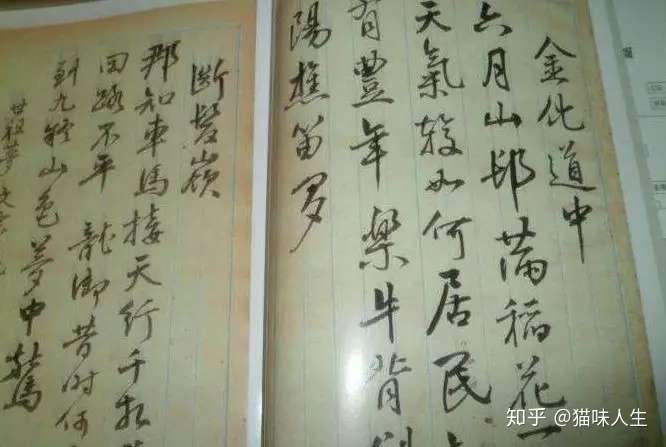 金化道中
六月山邨滿稻花
天氣較如何居民
有豐年樂牛背
陽樵笛多
斷髮嶺
那知車馬接天行千
回路不平 龍御昔時何
到九山色夢中驚
世祖夢
知乎 @猫味人生